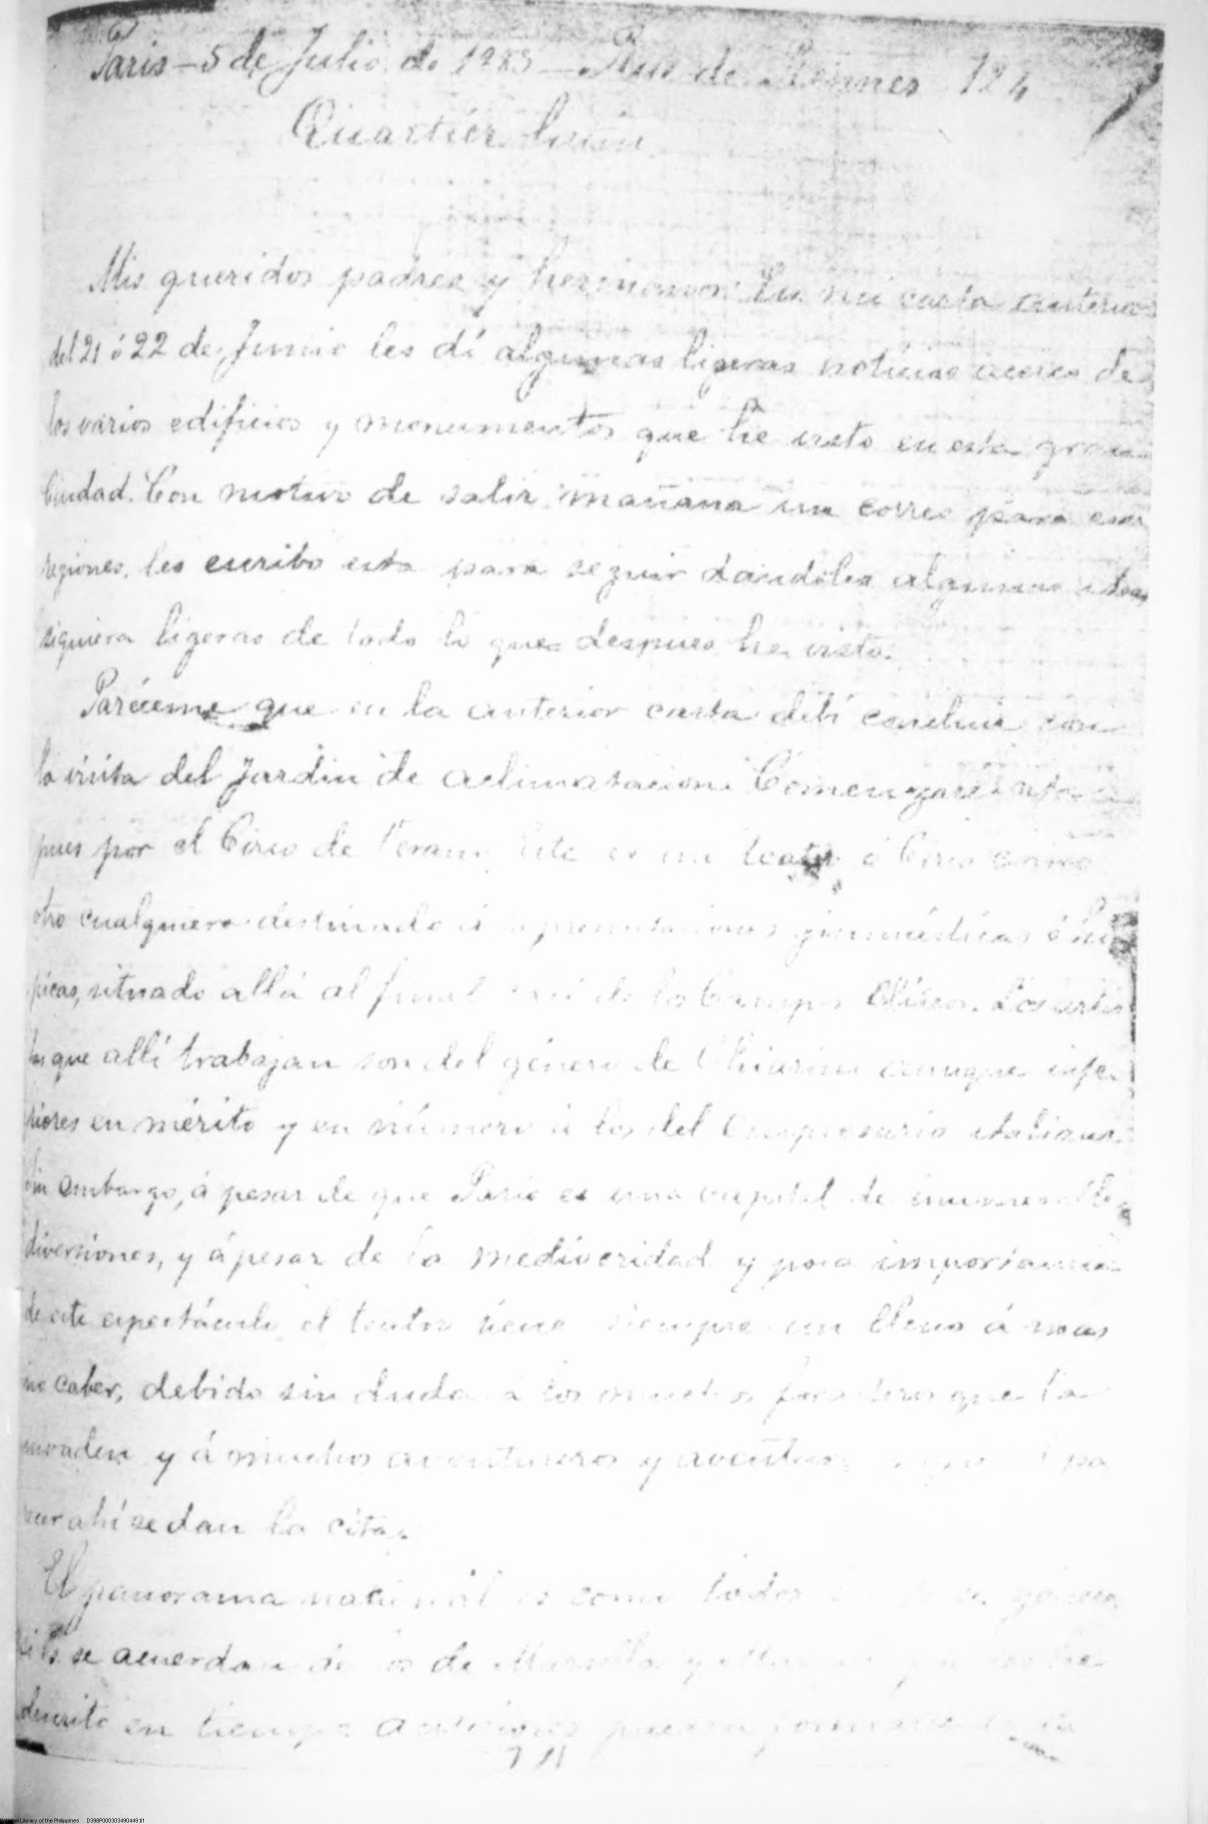 Paris – 5 de Julio de 1883 – Rue de Rennes 124
Quartier Latin
Mis queridos padres y hermanos: En mi carta anterior
del 21 ó 22 de Junio les dí algunas ligeras noticias acerca de
los varios edificios y monumentos que he visto en esta gran
Ciudad. Con motivo de salir mañana un correo para esas
regiones, les escribo esta para seguir dándoles algunas ideas
siquiera ligeras de todo lo que despues he visto.
Paréceme que en la anterior carta debí concluir con
la visita del Jardin de aclimatacion. Comenzaré esta
pues por el Circo de Verano. Este es un teatro ó Circo como
otro cualquiera destinado á representaciones gimnásticas é hí
picas, situado allá al final casi de los Campos Elíseos. Los artis
tas que allí trabajan son del género de Chiarini aunque infe-
riores en mérito y en número á los del empresario italiano.
Sin embargo, á pesar de que Paris es una capital de innumerables
diversiones, y á pesar de la mediocridad y poca importancia
de este espectáculo el teatro tiene siempre un lleno á mas
no caber, debido sin duda á los muchos forasteros que la
invaden y á muchos aventureros y aventureras que al pa
recer ahí se dan la cita.
El panorama nacional es como todos los de su género
Si Vs. se acuerdan de los de Marsella y que les he
descrito en tiempos anteriores pueden formarse